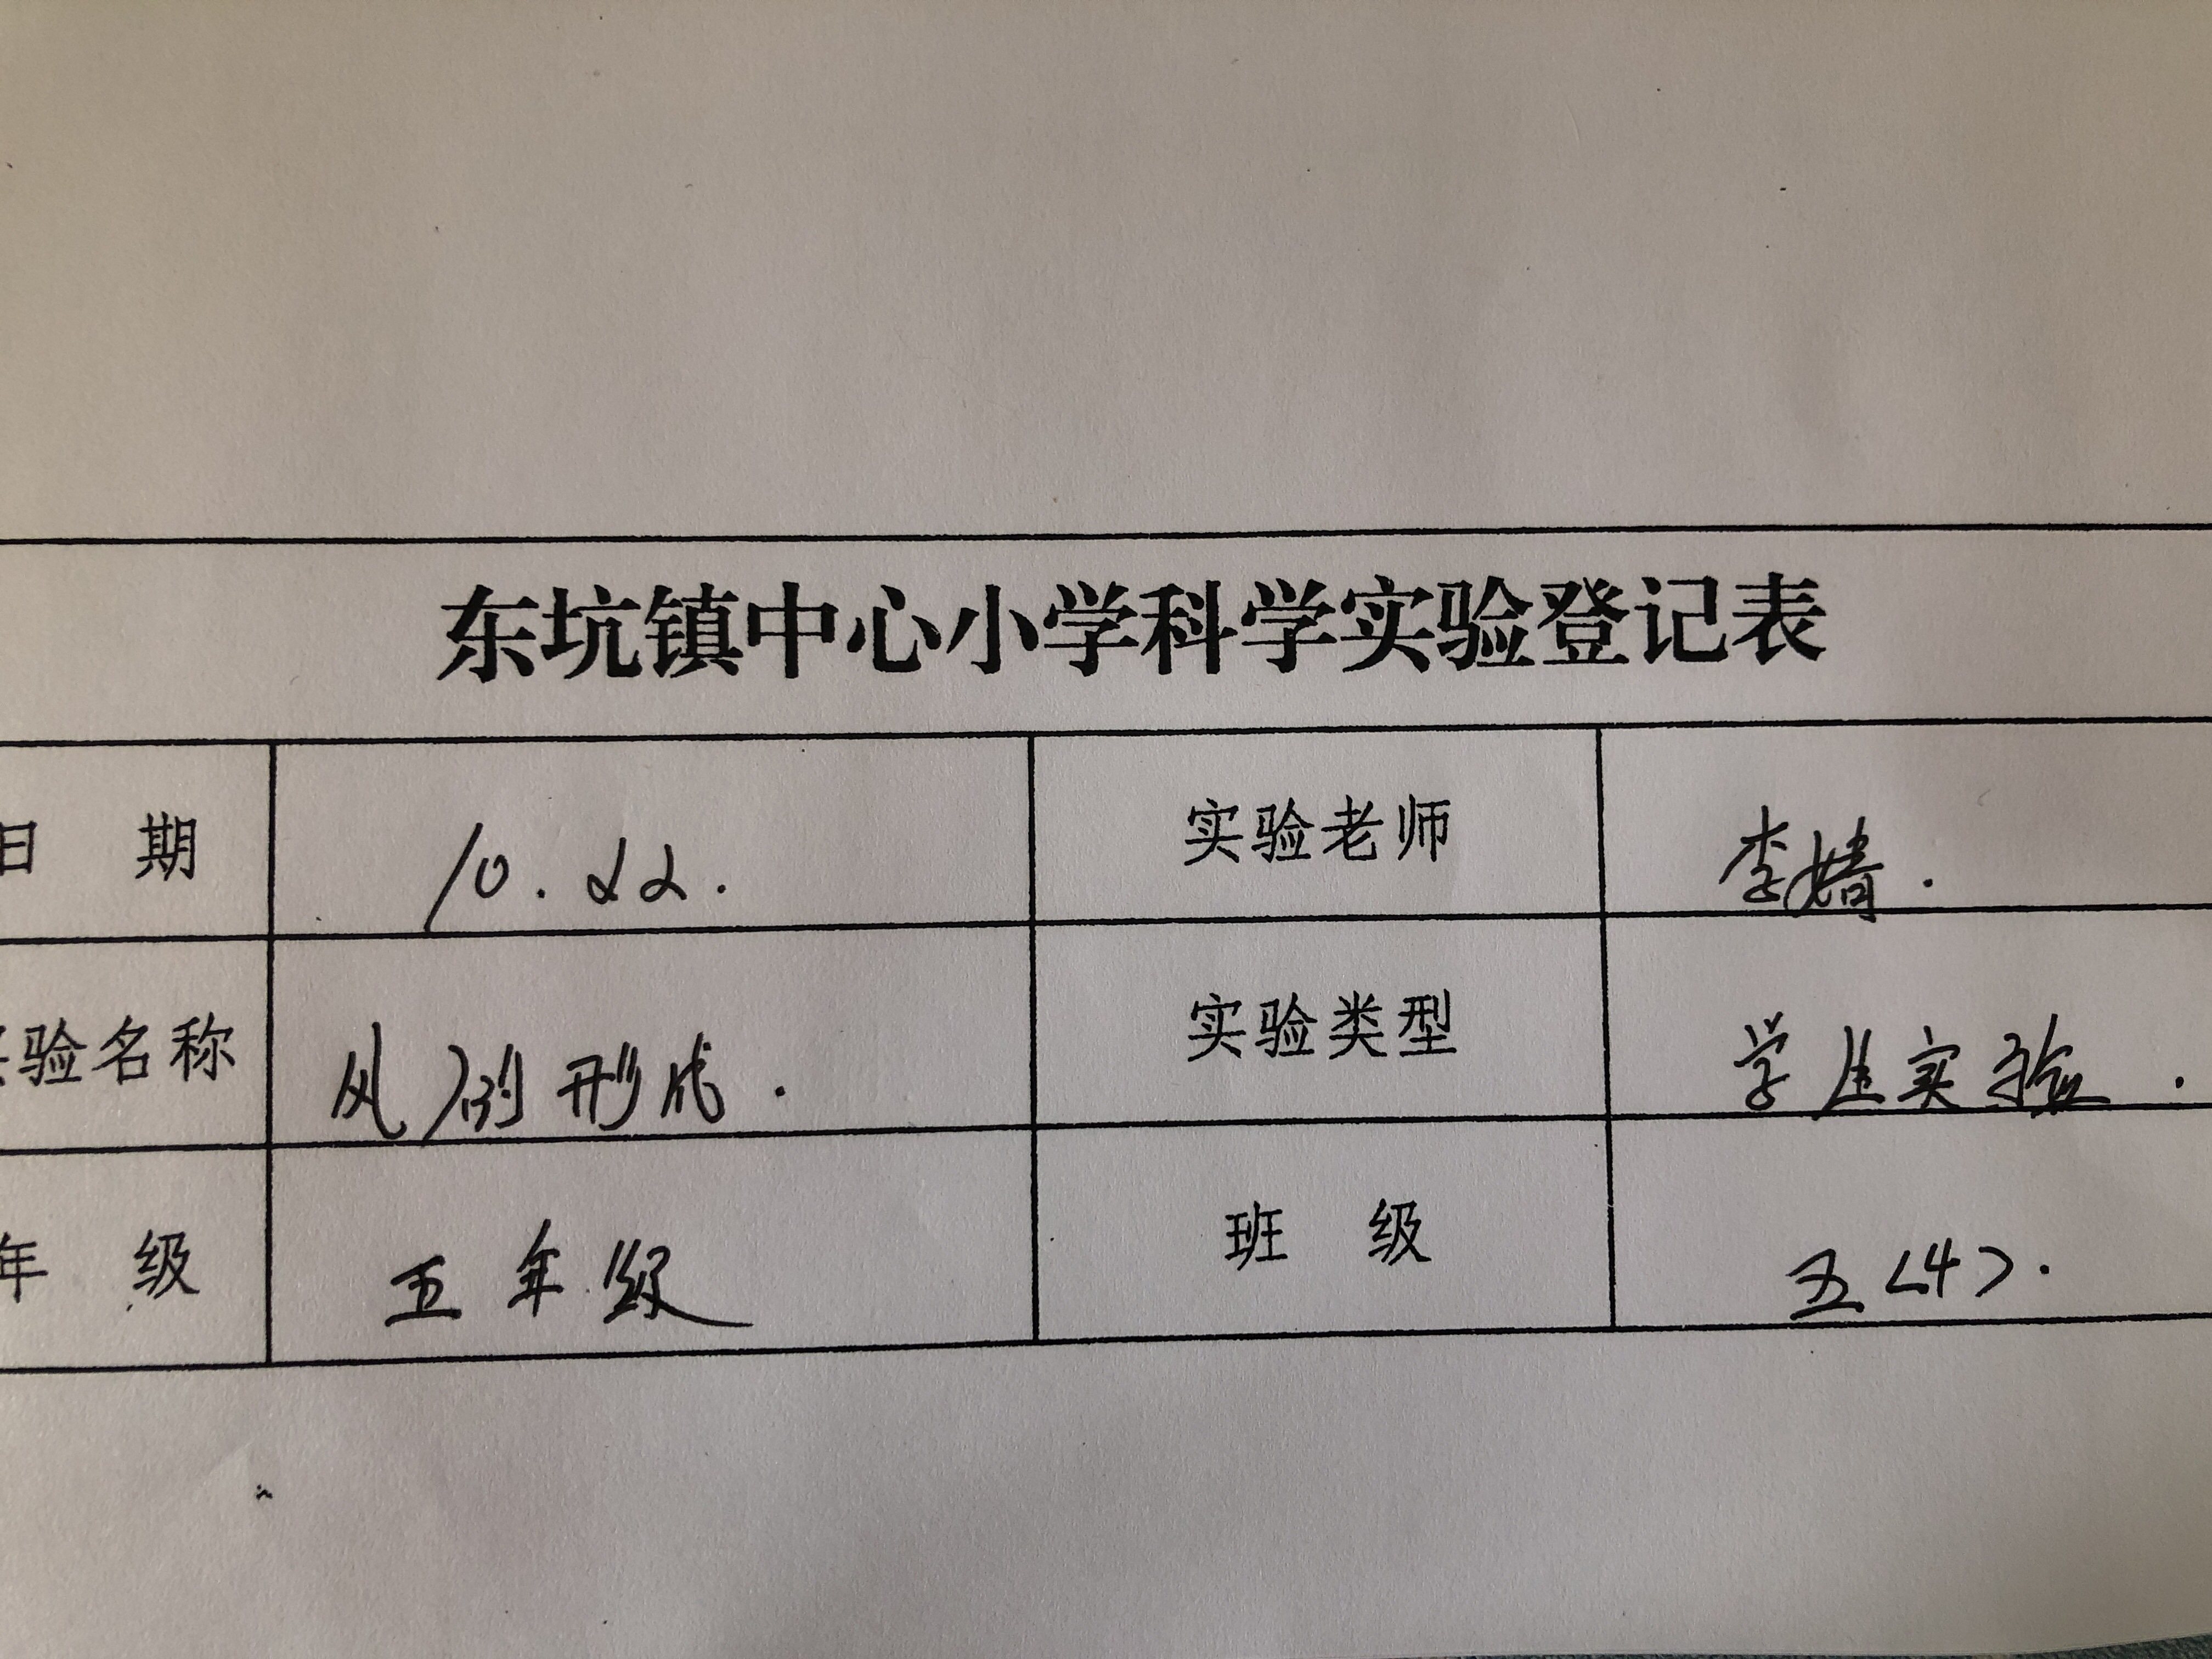 东坑镇中心小学科学实验登记表
日 期 10.22. 实验老师 李婧.
验名称 风的形成. 实验类型 学生实验.
年 级 五年级 班 级 五<4>.